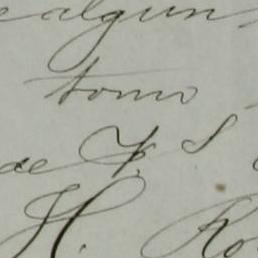 algun
tomo
de F. S
H. Ro